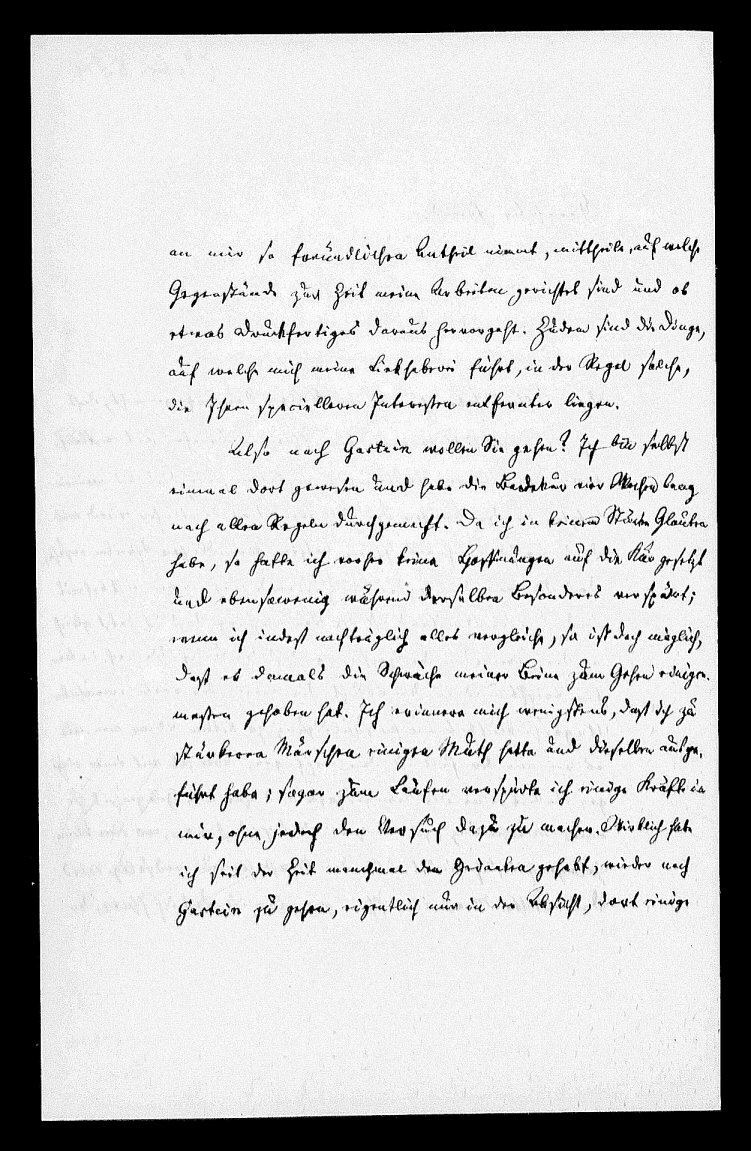 an mir so freundlichen Antheil nimmt, mittheile, auf welche
Gegenstände zur Zeit meine Arbeiten gerichtet sind und ob
etwas Druckfertiges daraus hervorgeht. Zudem sind die Dinge,
auf welche mich meine Liebhaberei führt, in der Regel solche,
die Ihren specielleren Interessen entfernter liegen.
Also nach Gastein wollen Sie gehen? Ich bin selbst
einmal dort gewesen und habe die Badekur vier Wochen lang
nach allen Regeln durchgemacht. Da ich in keinem Stücke Glauben
habe, so hatte ich vorher keine Hoffnungen auf die Kur gesetzt
und ebensowenig während derselben Besonderes verspürt;
wenn ich indeß nachträglich alles vergleiche, so ist doch möglich,
daß es damals die Schwäche meiner Beine zum Gehen einiger-
maßen gehoben hat. Ich erinnere mich wenigstens, daß ich zu
stärkeren Märschen einigen Muth hatte und dieselben ausge-
führt habe; sogar zum Laufen verspürte ich einige Kräfte in
mir, ohne jedoch den Versuch dazu zu machen. Wirklich habe
ich seit der Zeit manchmal den Gedanken gehabt, wieder nach
Gastein zu gehen, eigentlich nur in der Absicht, dort einige